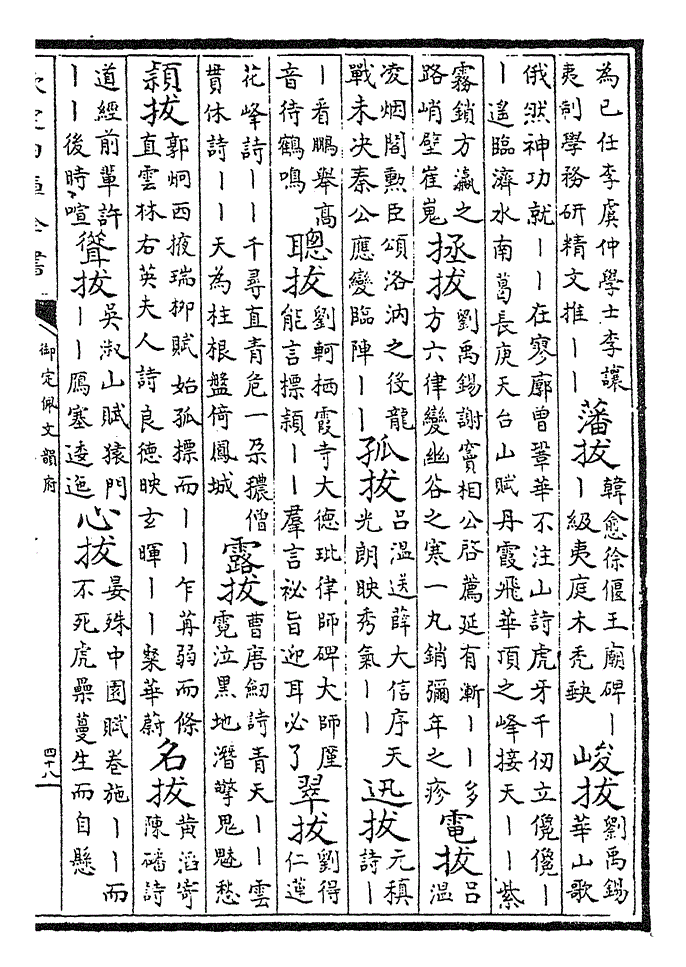 為己任李虞仲學士李讓
夷制學務研精文推丨丨
藩拔
韓愈徐偃王廟碑丨
丨級夷庭木禿缺
峻拔
劉禹錫
華山歌
俄然神功就丨丨在寥廓曾鞏華不注山詩虎牙千仞立巉巉丨
丨遥臨濟水南葛長庚天台山賦丹霞飛華頂之峰接天丨丨紫
霧鎖方瀛之
路峭壁崔嵬
拯拔
劉禹錫謝竇相公啓薦延有漸丨丨多
方六律變幽谷之寒一丸銷彌年之疹
電拔
呂
温
凌烟閣勲臣頌洛汭之後龍
戰未決秦公應變臨陣丨丨
孤拔
呂温送薛大信序天
光朗映秀氣丨丨
迅拔
元稹
詩丨
丨看鵬舉高
音待鶴鳴
聰拔
劉軻栖霞寺大德玭律師碑大師厘
能言標穎丨丨羣言祕旨迎耳必了
翠拔
劉得
仁蓮
花峰詩丨丨千尋直青危一朶穠僧
貫休詩丨丨天為柱根盤倚鳳城
露拔
曹唐劒詩青天丨丨雲
霓泣黑地潛驚鬼魅愁
穎拔
郭炯西掖瑞柳賦始孤標而丨丨乍苒弱而條
直雲林右英夫人詩良德映玄暉丨丨粲華蔚
名拔
黄滔寄
陳磻詩
道經前輩許
丨丨後時喧
聳拔
吳淑山賦猿門
丨丨鴈塞逶迤
心拔
晏殊中園賦卷施丨丨而
不死虎櫐蔓生而自懸
欽定四庫全書
御定佩文韻府
四十八